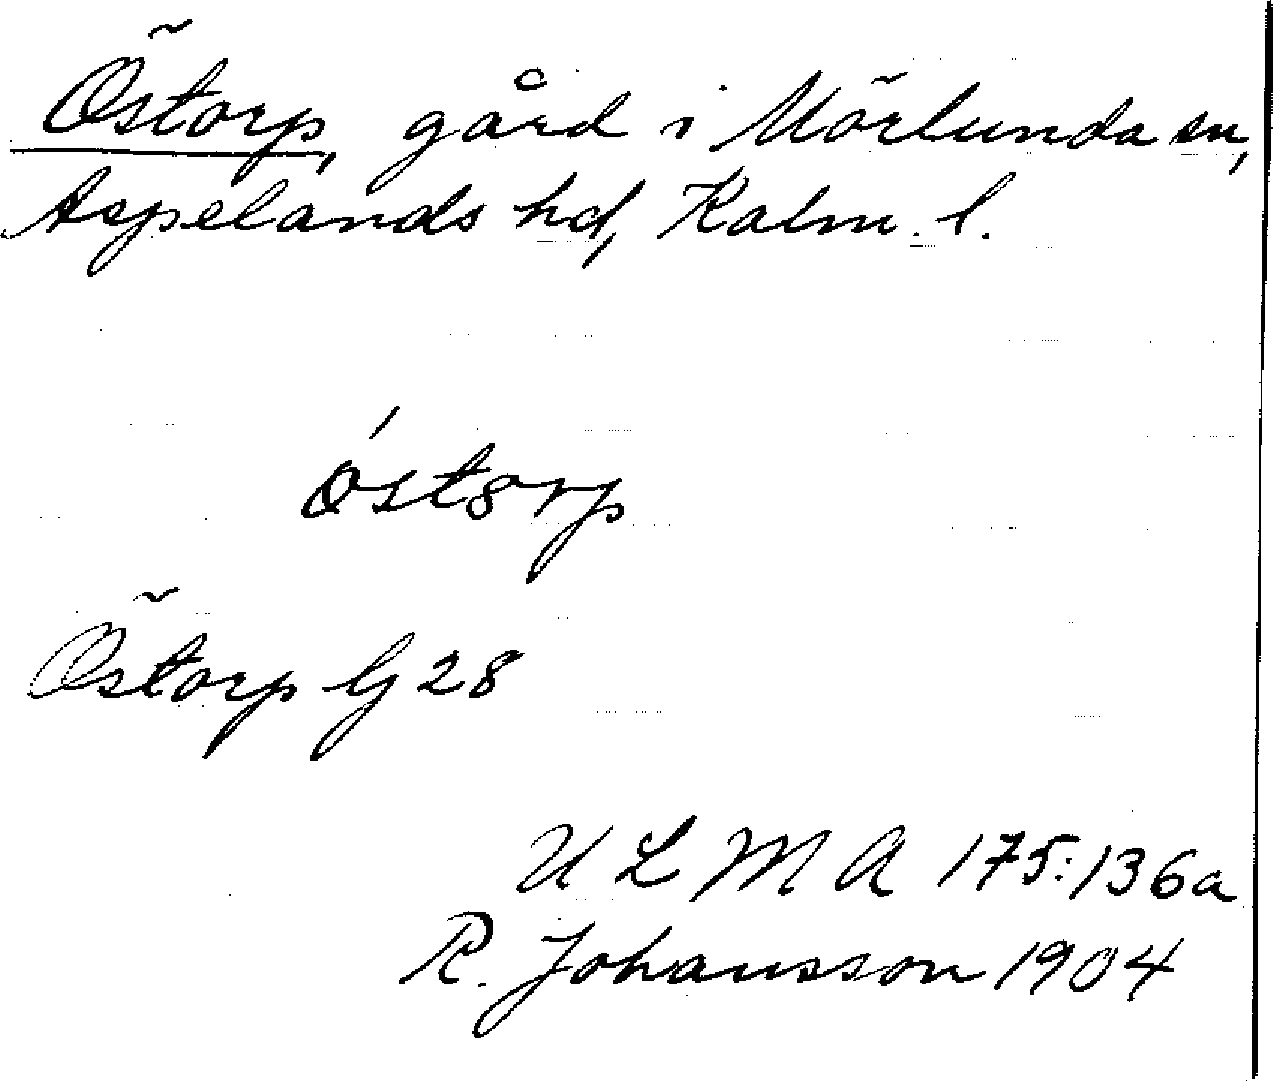 Östorp, gård i Mörlunda sn,
Aspelands hd, Kalm. l.
óstorp
Östorp G 28
U L M A 175:136a
R. Johansson 1904